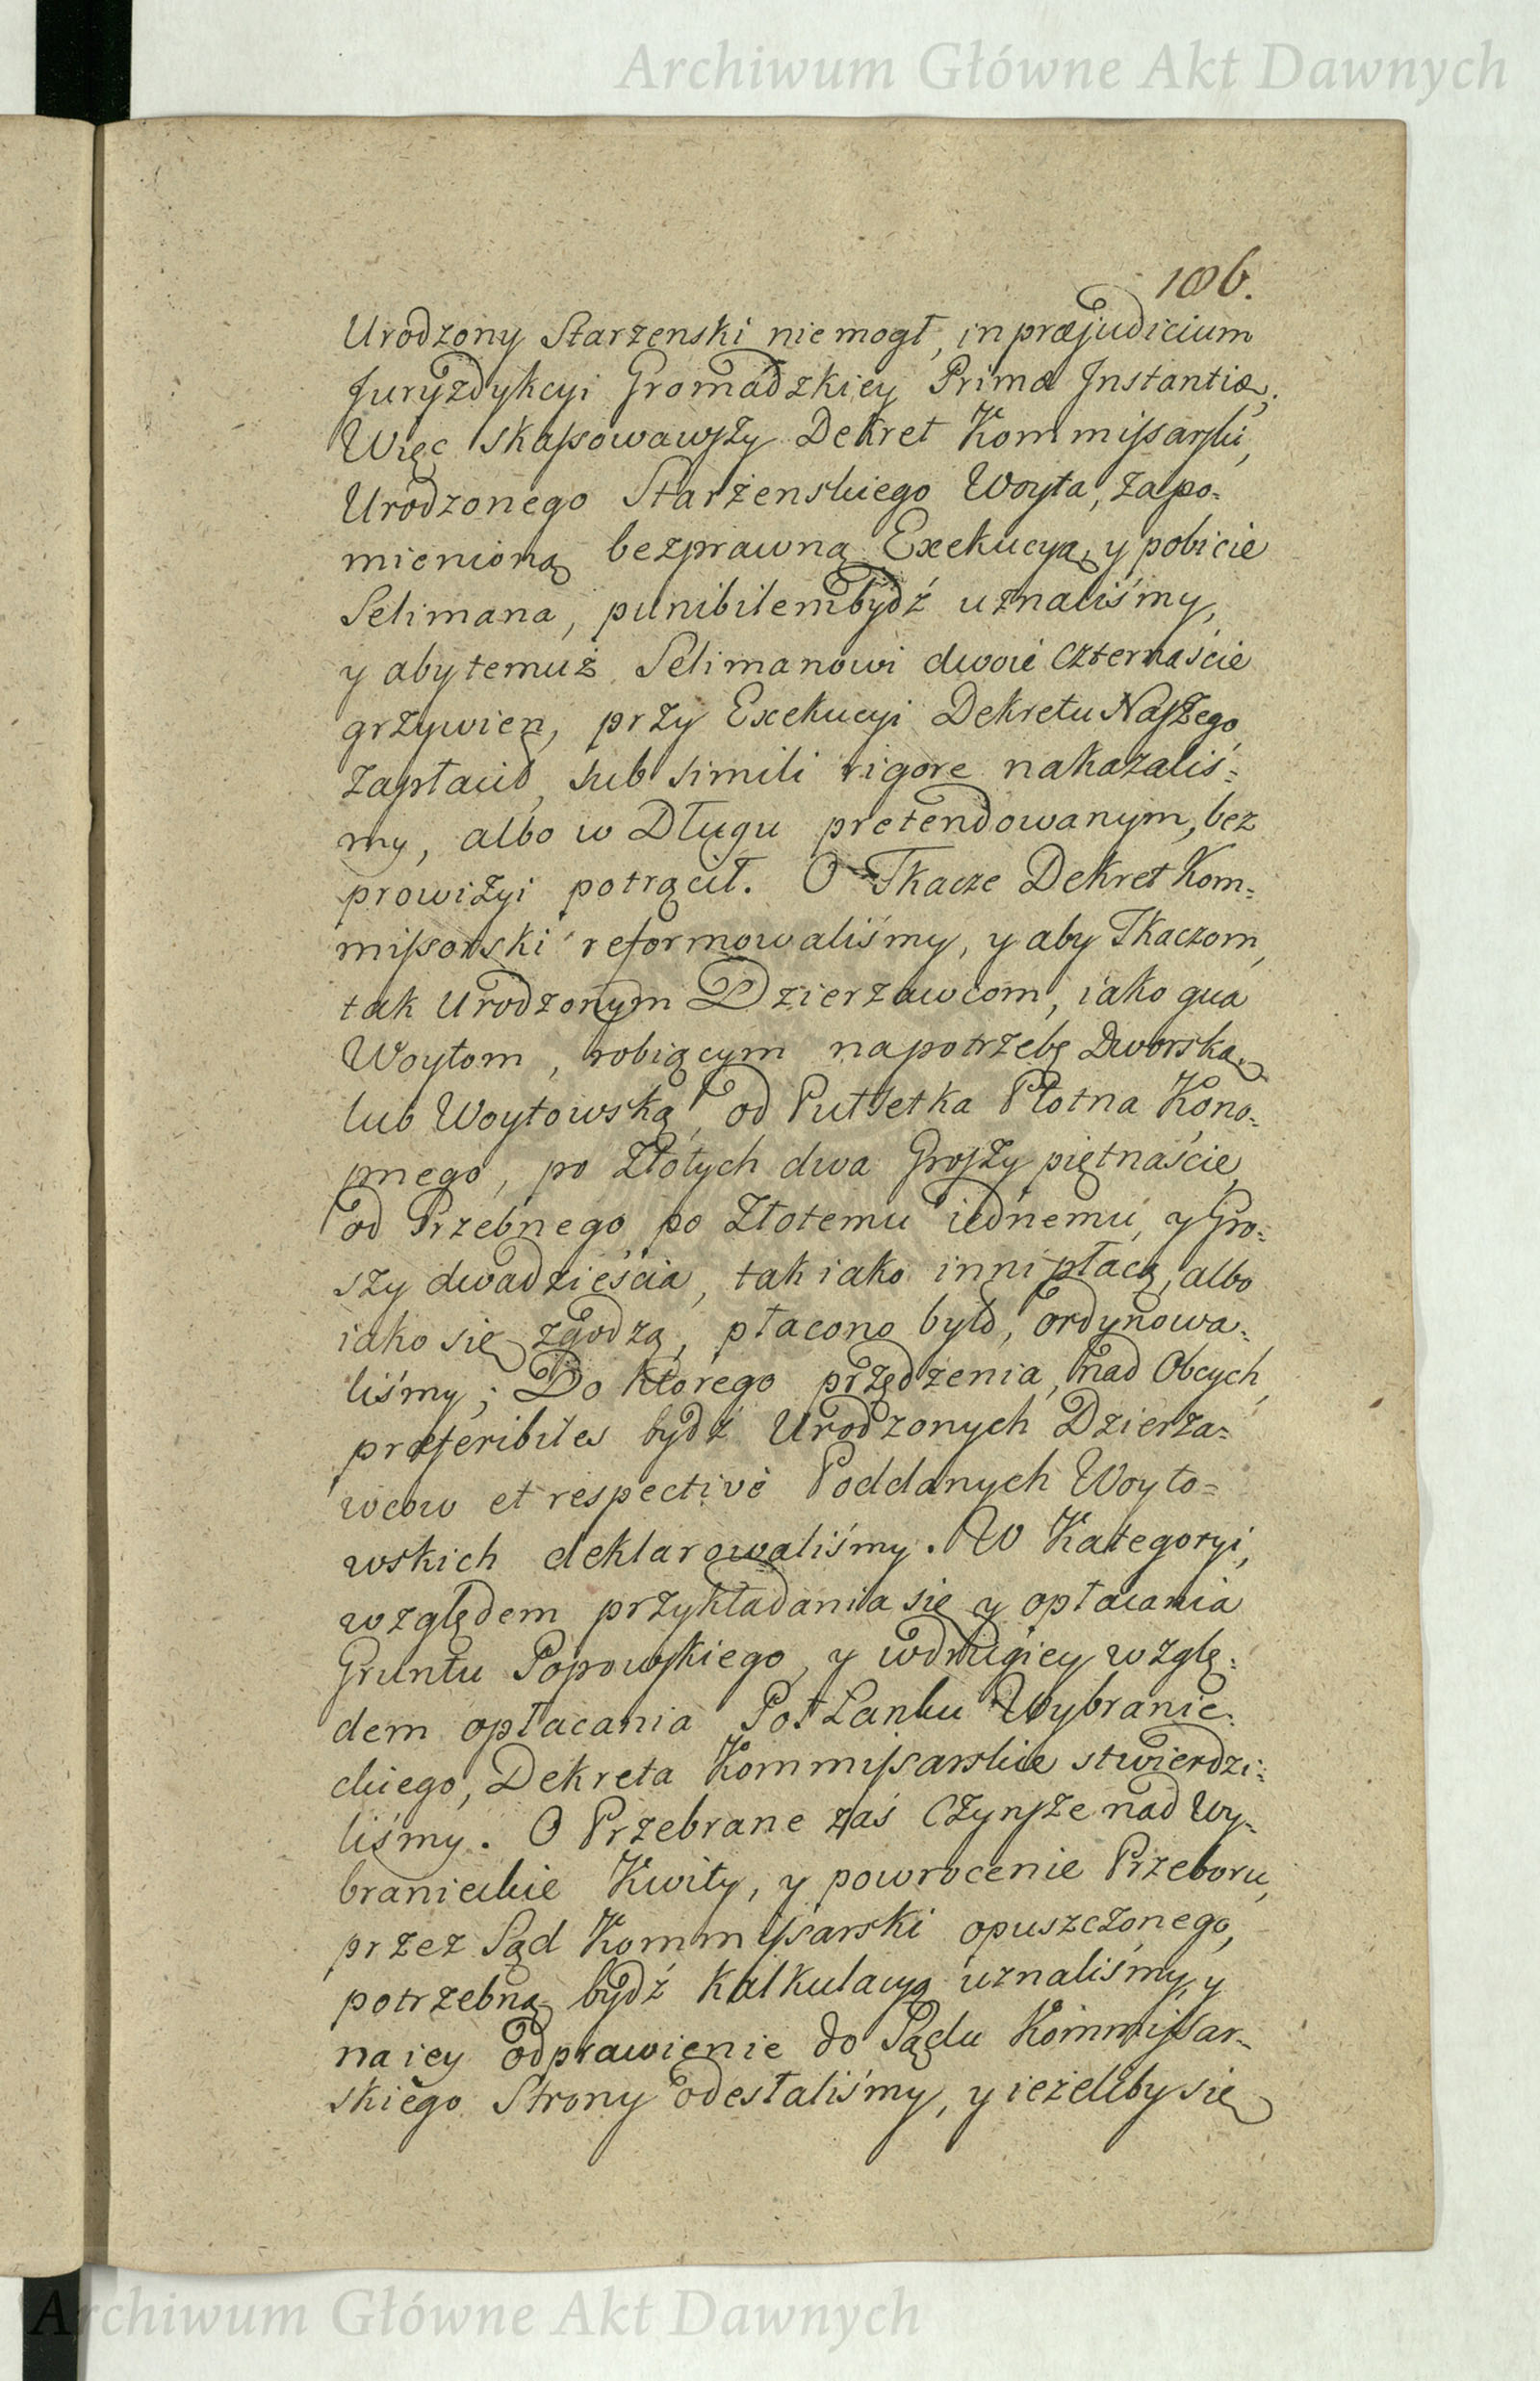 Archiwum Główne Akt Dawnych
106.
Urodzony Starzenski nie mogł, in præjudicium
Juryzdykcyi Gromadzkiey Primæ Instantiæ,
Więc skassowawszy Dekret Kommissarski,
Urodzonego Starżenskiego Woyta, za po-
mienioną bezprawną Exekucyą, y pobicie
Selimana, punibilem bydź uznaliśmy,
y aby temuż Selimanowi dwoie czternaście
grzywien, przy Exekucyi Dekretu Naszego
zapłacił, sub simili rigore nakazaliś-
my, albo w Długu pretendowanym, bez
prowizyi potrącił. O Tkacze Dekret Kom-
missorski reformowaliśmy, y aby Tkaczom,
tak Urodzonym Dzierzawcom, iako qua
Woytom, robiącym na potrzebę Dworską
lub Woytowską, od Pułsetka Płotna Kono-
pnego, po Złotych dwa Groszy piętnaście,
od Przebnego po Złotemu iednemu, y Gro-
szy dwadzieścia, tak iako inni płacą, albo
iako się zgodzą, płacono było, ordynowa-
liśmy; Do ktorego przędzenia, nad Obcych,
præferibiles bydź Urodzonych Dzierża-
wcow et respectivè Poddanych Woyto-
wskich deklarowaliśmy. W Kategoryi,
względem przykładania się y opłacania
Gruntu Popowskiego, y w drugiey wzglę-
dem opłacania Poł Lanku Wybranie-
ckiego, Dekreta Kommissarskie stwierdzi-
liśmy. O Przebrane zaś Czynsze nad Wy-
branieckie Kwity, y powrocenie Przeboru,
przez Sąd Kommissarski opuszczonego,
potrzebną bydź Kalkulacyą uznaliśmy, y
na iey odprawienie do Sądu Kommissar-
skiego Strony odesłaliśmy, y ieżeliby się
Archiwum Główne Akt Dawnych